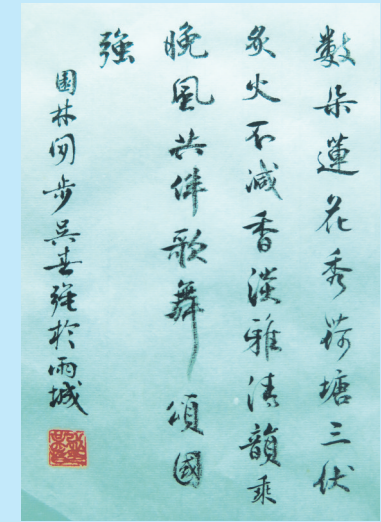 數朵蓮花秀荷塘三伏
炙火不減香淡雅清韻乘
晚風共伴歌舞頌國
強
園林閒步吳春強於雨城